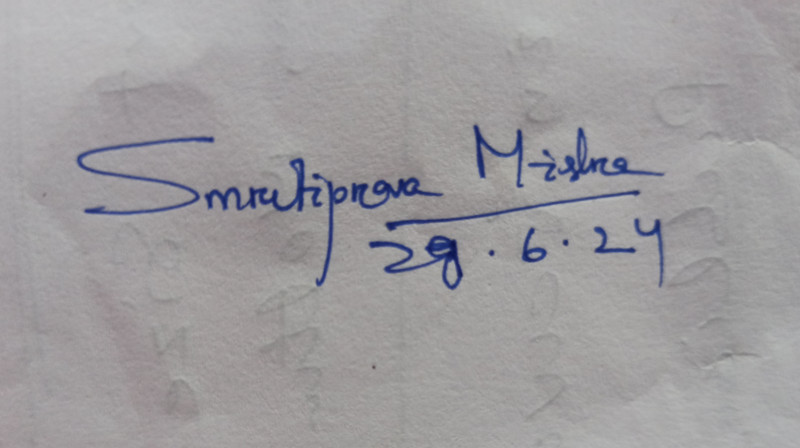 Smrutiprava Mishra
29.6.24